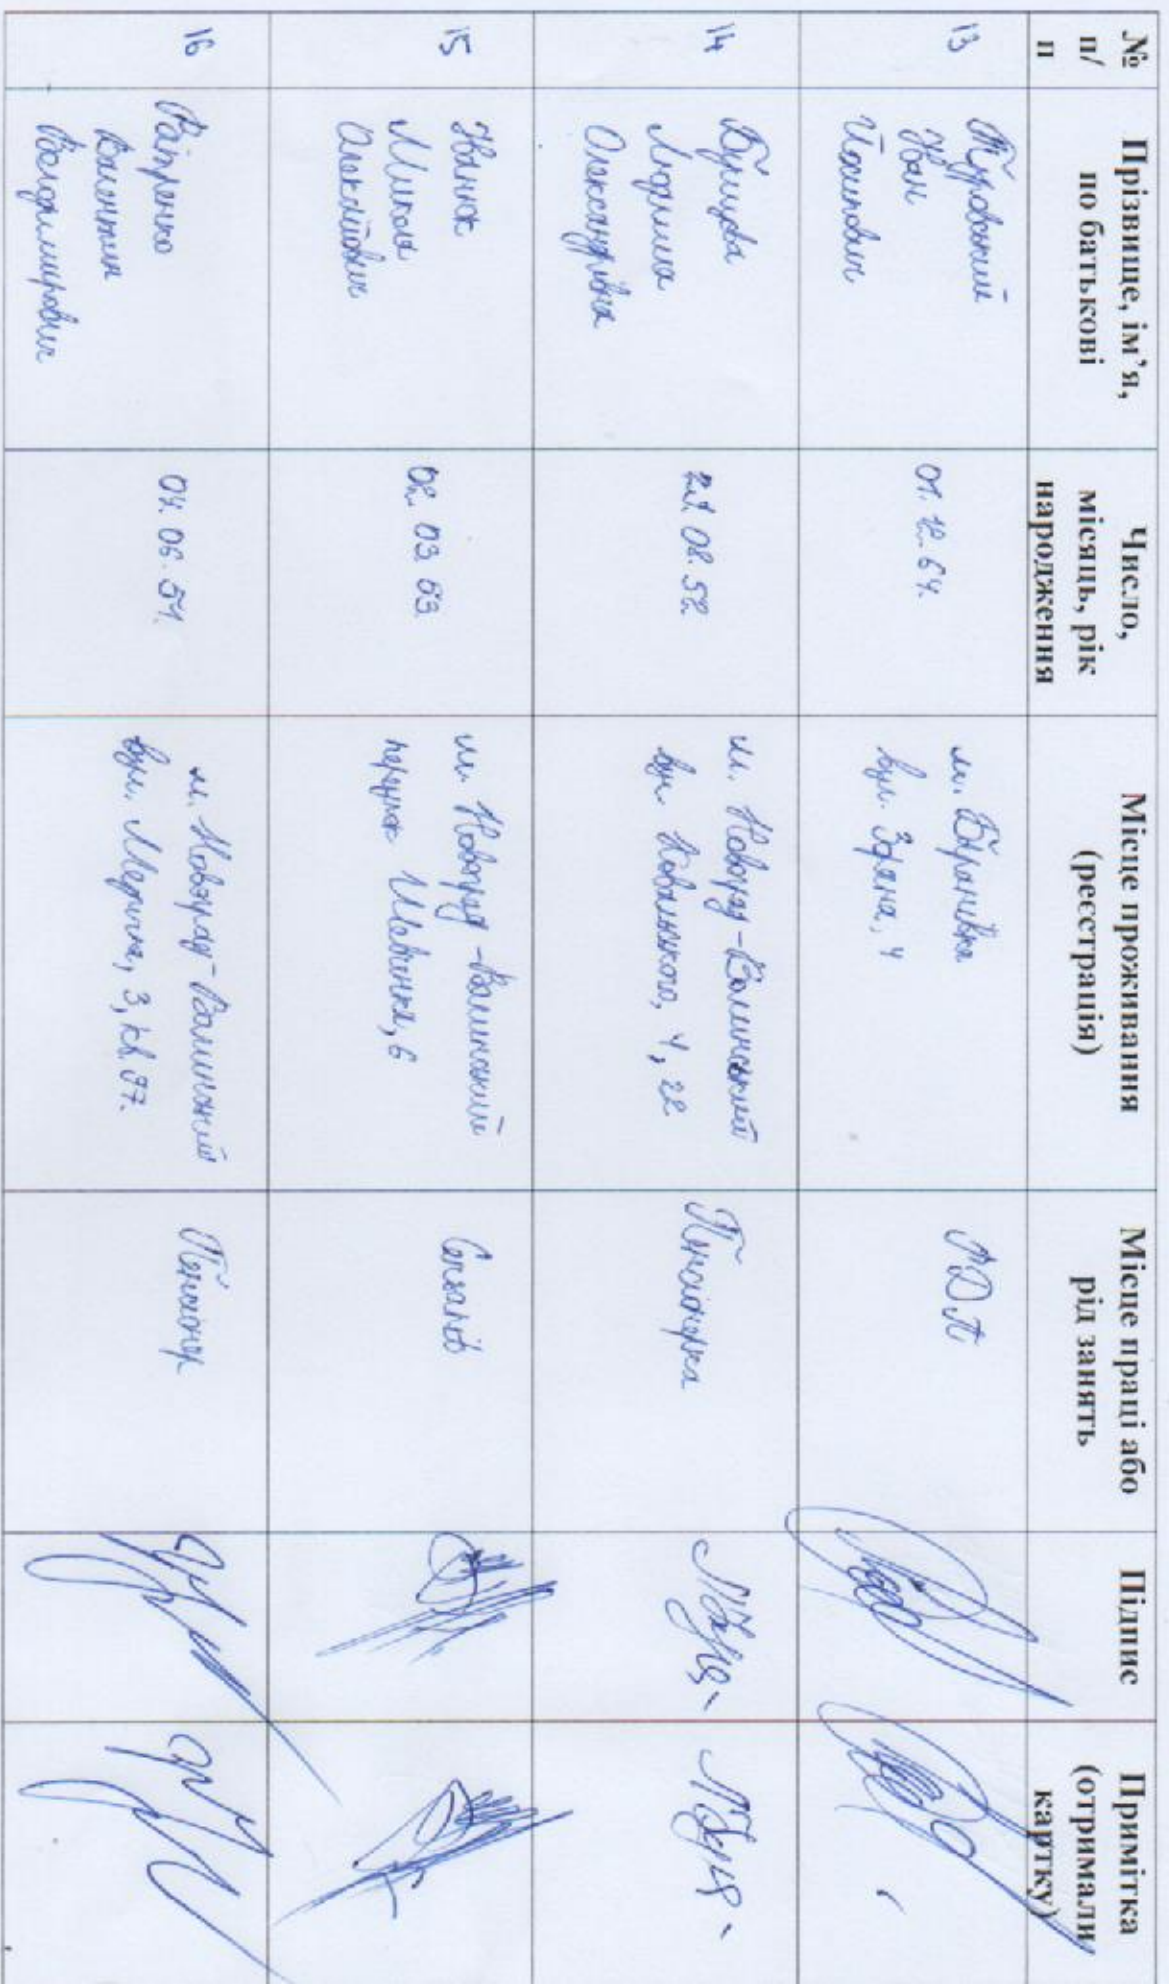 № п/п
Прізвище, ім’я, по батькові
Число, місяць, рік народження
Місце проживання (реєстрація)
Місце праці або рід занять
Підпис
Примітка (отримали картку)
13
Іван
Йосипович
01.12.64.
м. Баранівка
вул. Зоряна, 4
14
Людмила
Олександрівна
08.52
м. Новоград-Волинський
вул. 4, 22
Пенсіонерка
15
Іванюк
Микола
Олексійович
02.03.
м. Новоград-Волинський
провулок Шевченка, 6
16
Вітренко
Валентин
Володимирович
04.06.
м. Новоград-Волинський
вул. Медична, 3, кв.
Пенсіонер